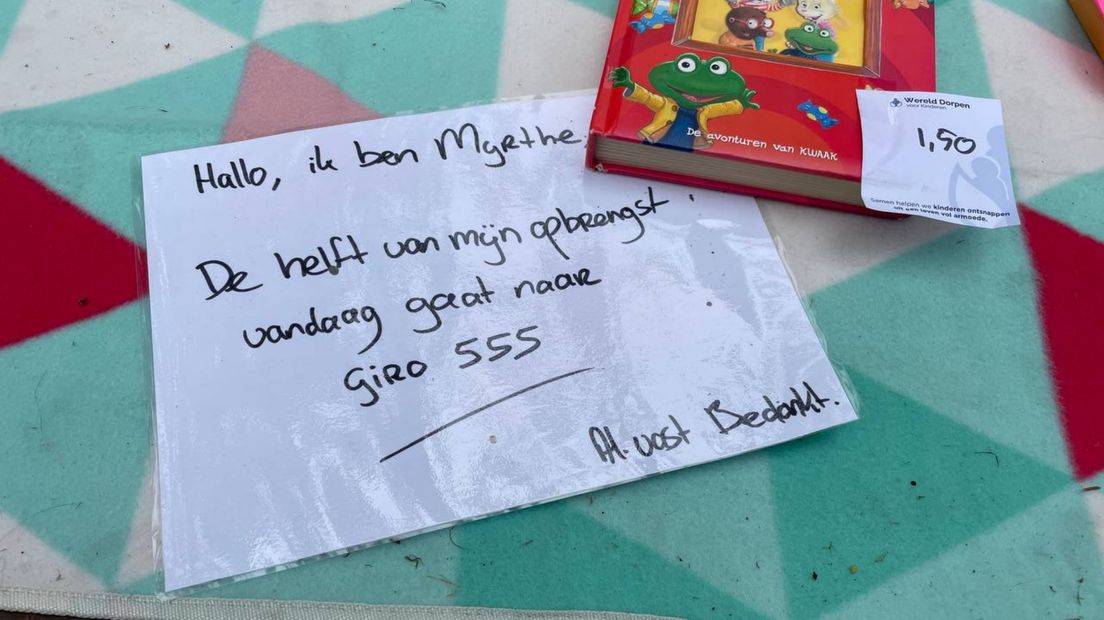 Hallo, ik ben Myrthe.
De helft van mijn opbrengst
vandaag gaat naar
giro 555
Al. vast Bedankt.
De avonturen van KWAAK
Wereld Dorpen
voor Kinderen
1,50
Samen helpen we kinderen ontsnappen
uit een leven vol armoede.